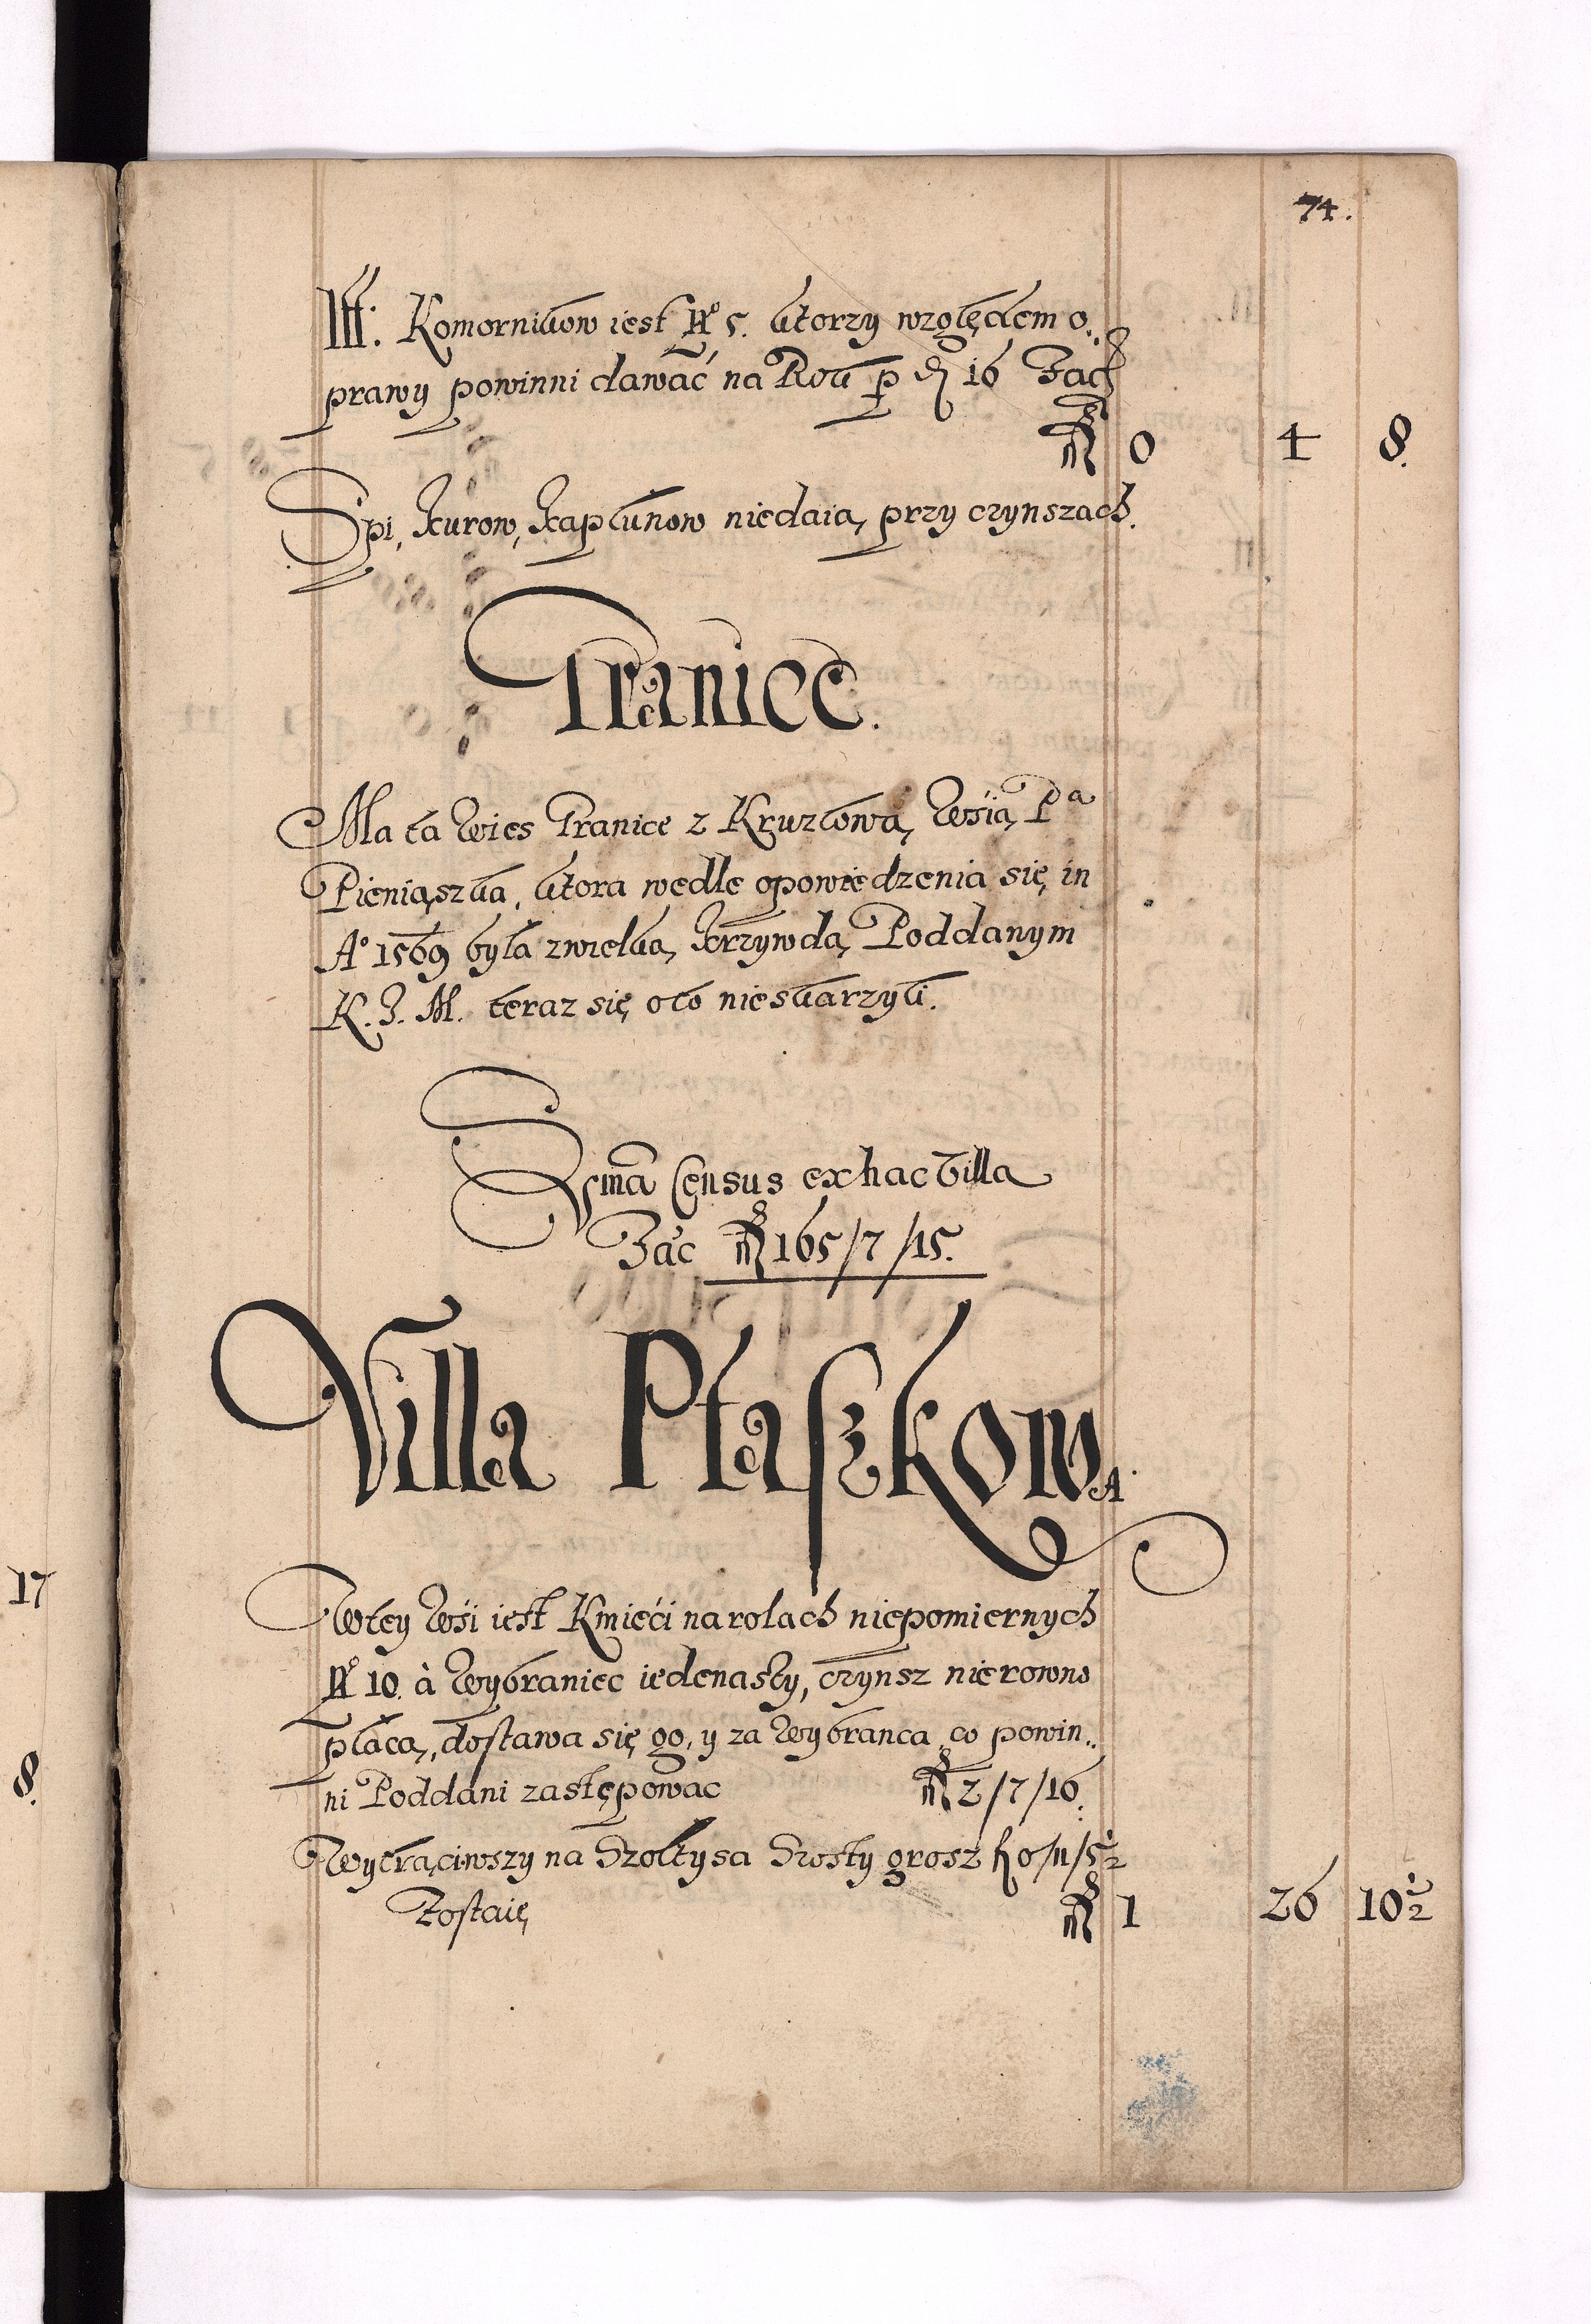 74.
Itt: Komornikow iest No 5. ktorzy względem o.
prawy powinni dawać na Rok p d 16 Fac
f 0 4 8.
Spi, kurow, kapłunow niedaią, przy czynszach.
Granice.
Ma ta Wies Granice z Kruzlową, Wsią Pa
Pieniąszka, ktora wedle opowiedzenia się in
Ao 1569 była zwielką krzywdą Poddanym
K. J. M. teraz się oto nieskarzyli.
Sma Census ex hac Villa
Fac f 165/7/15.
Villa Ptaszkowa
Wtey Wsi iest Kmieći narolach niepomiernych
No 10. à Wybraniec iedenasty, czynsz nierowno
płacą, dostawa się go, y za Wybranca, co powin..
ni Poddani zastępowac f 2/7/16.
Wytrąciwszy na Szołtysa Szosty grosz f 0/11/5½
Zostaię f 1 26 10½
17
8.